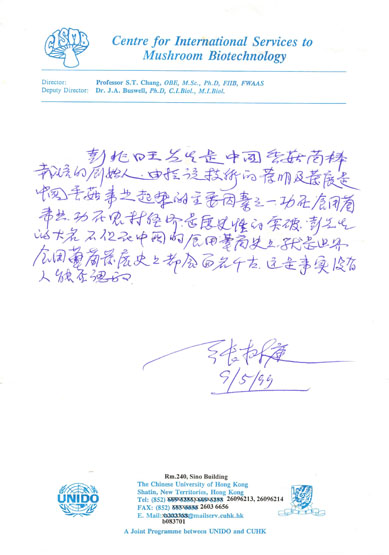 CISMB
Centre for International Services to
Mushroom Biotechnology
Director: Professor S.T. Chang, OBE, M.Sc., Ph.D, FIIB, FWAAS
Deputy Director: Dr. J.A. Buswell, Ph.D, C.I.Biol., M.I.Biol.
彭兆旺先生是中国香菇菌棒
栽培的创始人。由於这技术的发明及发展是
中国香菇事业起飞的主要因素之一。功在食用菌
事业,功在农村经济是历史性的突破。彭先生
的大名不但在中国的食用菌史上,就是世界
食用菌发展史上都会留名千古。这是事实没有
人能否认的。
张树庭
9/5/99
UNIDO
Rm.240, Sino Building
The Chinese University of Hong Kong
Shatin, New Territories, Hong Kong
Tel: (852) 26096213, 26096214
FAX: (852) 2603 6656
E. Mail: @mailserv.cuhk.hk
b083701
A Joint Programme between UNIDO and CUHK